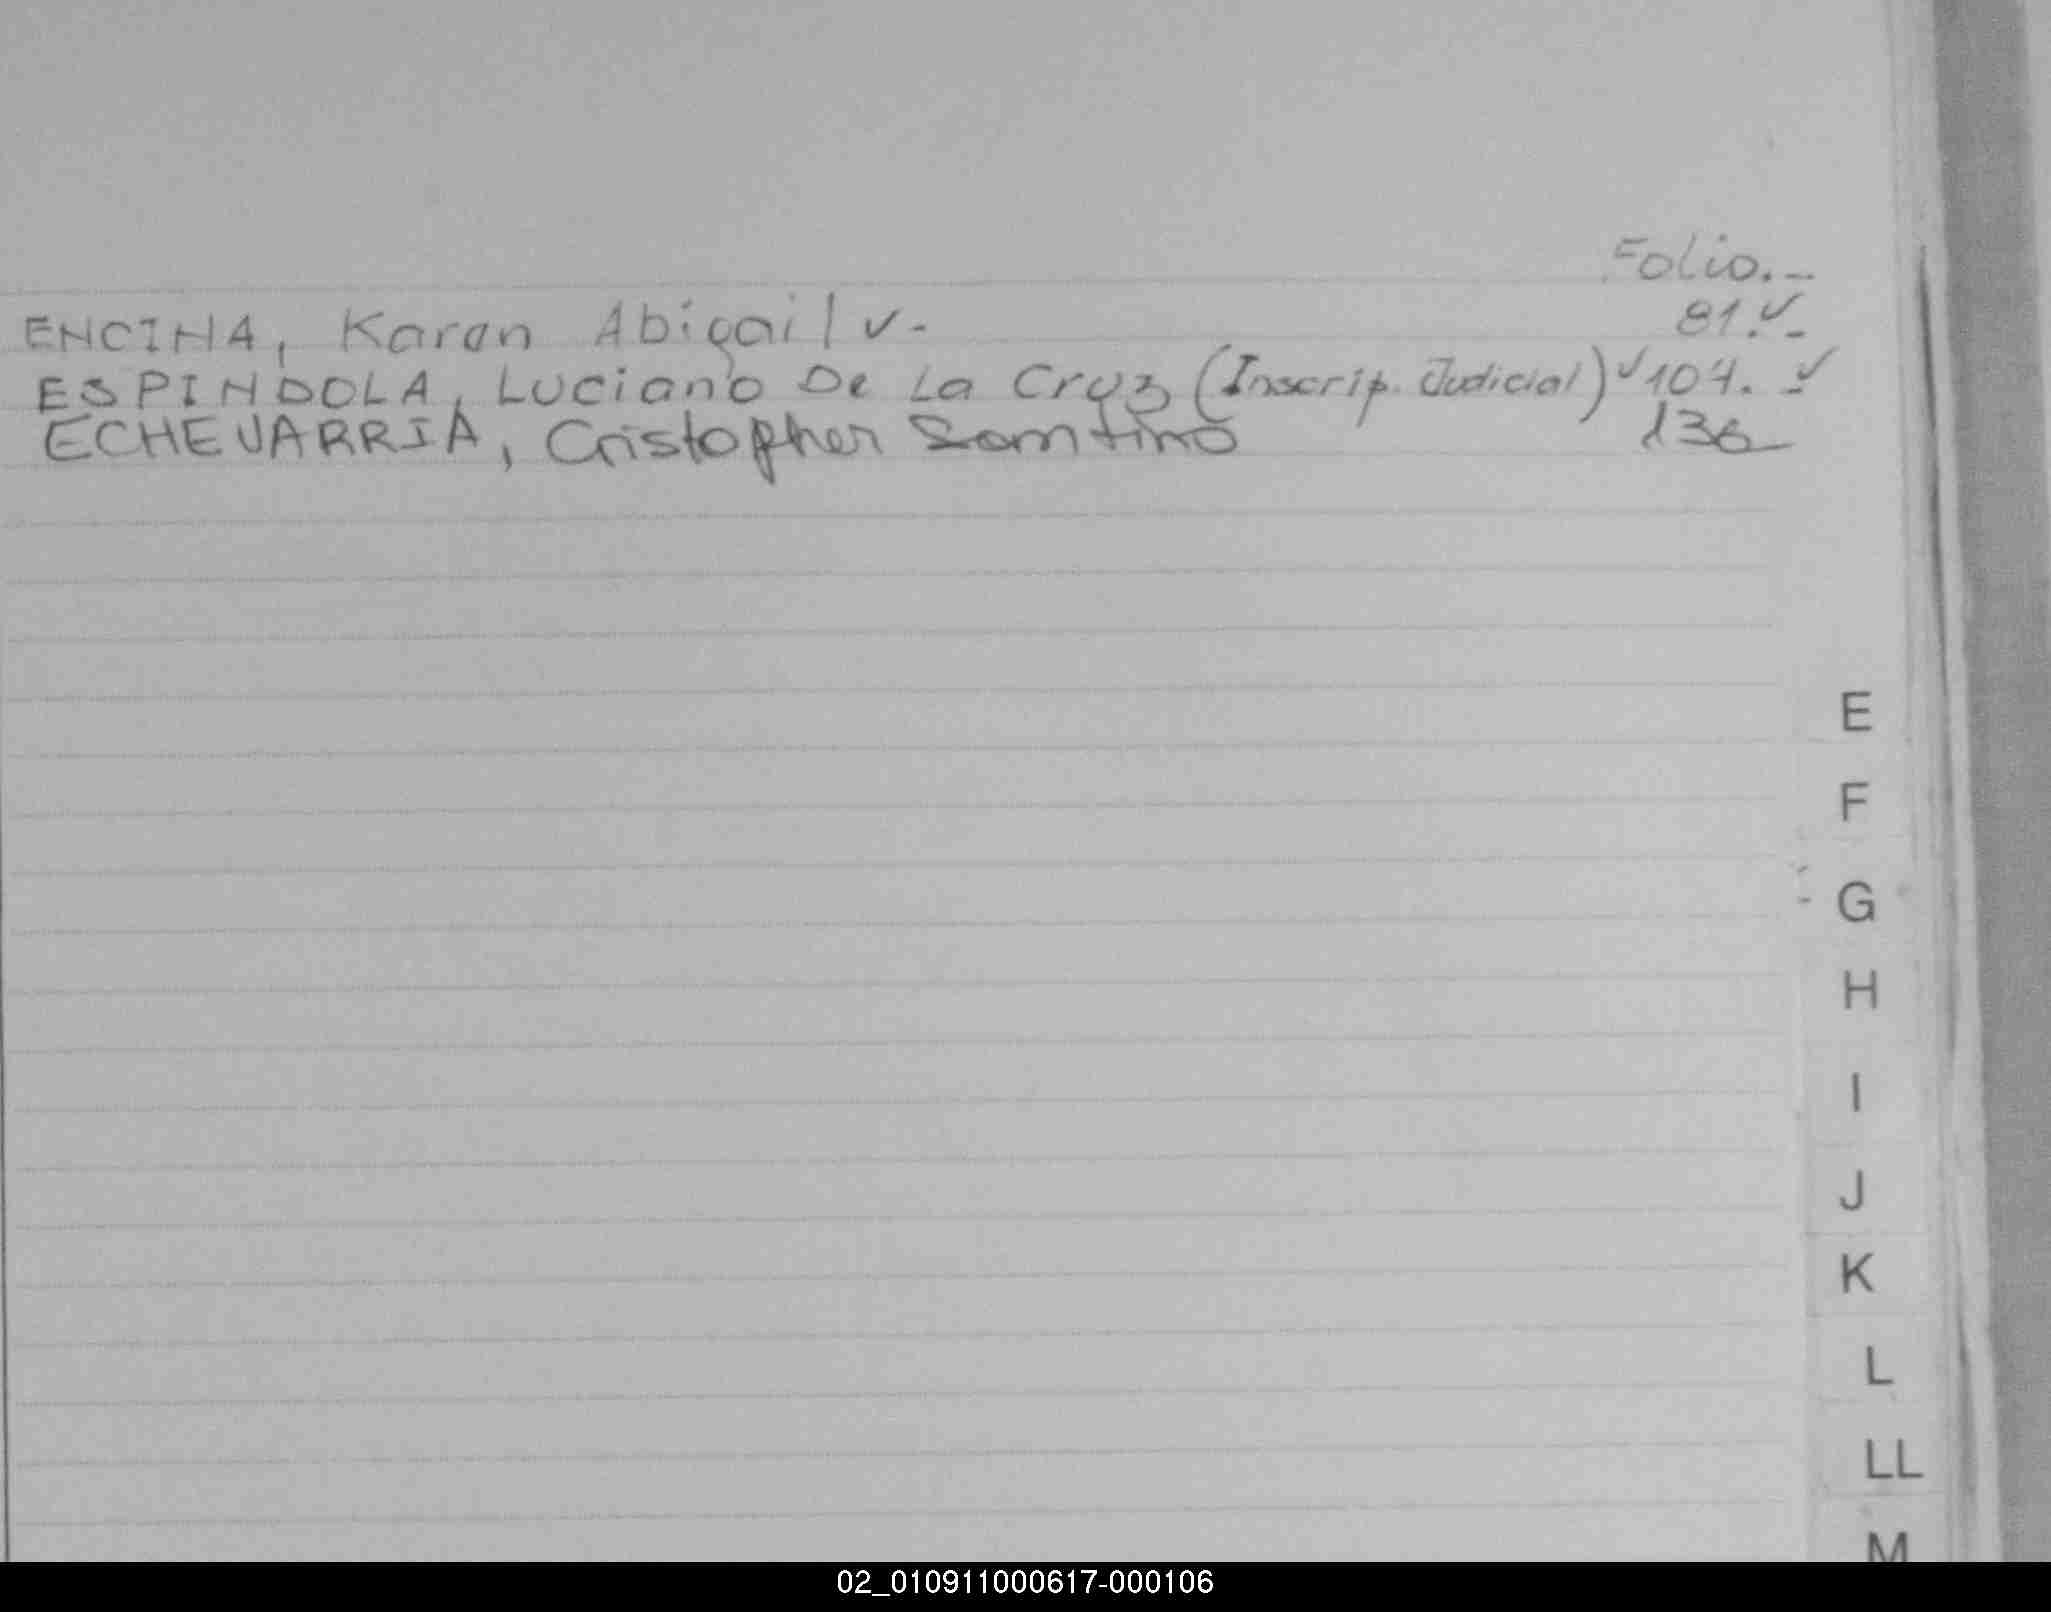 Folio.-
ENCINA, Karen Abigail ✓.- 81.✓-
ESPINDOLA, Luciano De La Cruz (Inscrip. Judicial) ✓ 104. ✓-
ECHEVARRIA, Cristopher Santino 136
E
F
G
H
I
J
K
L
LL
M
02_010911000617-000106